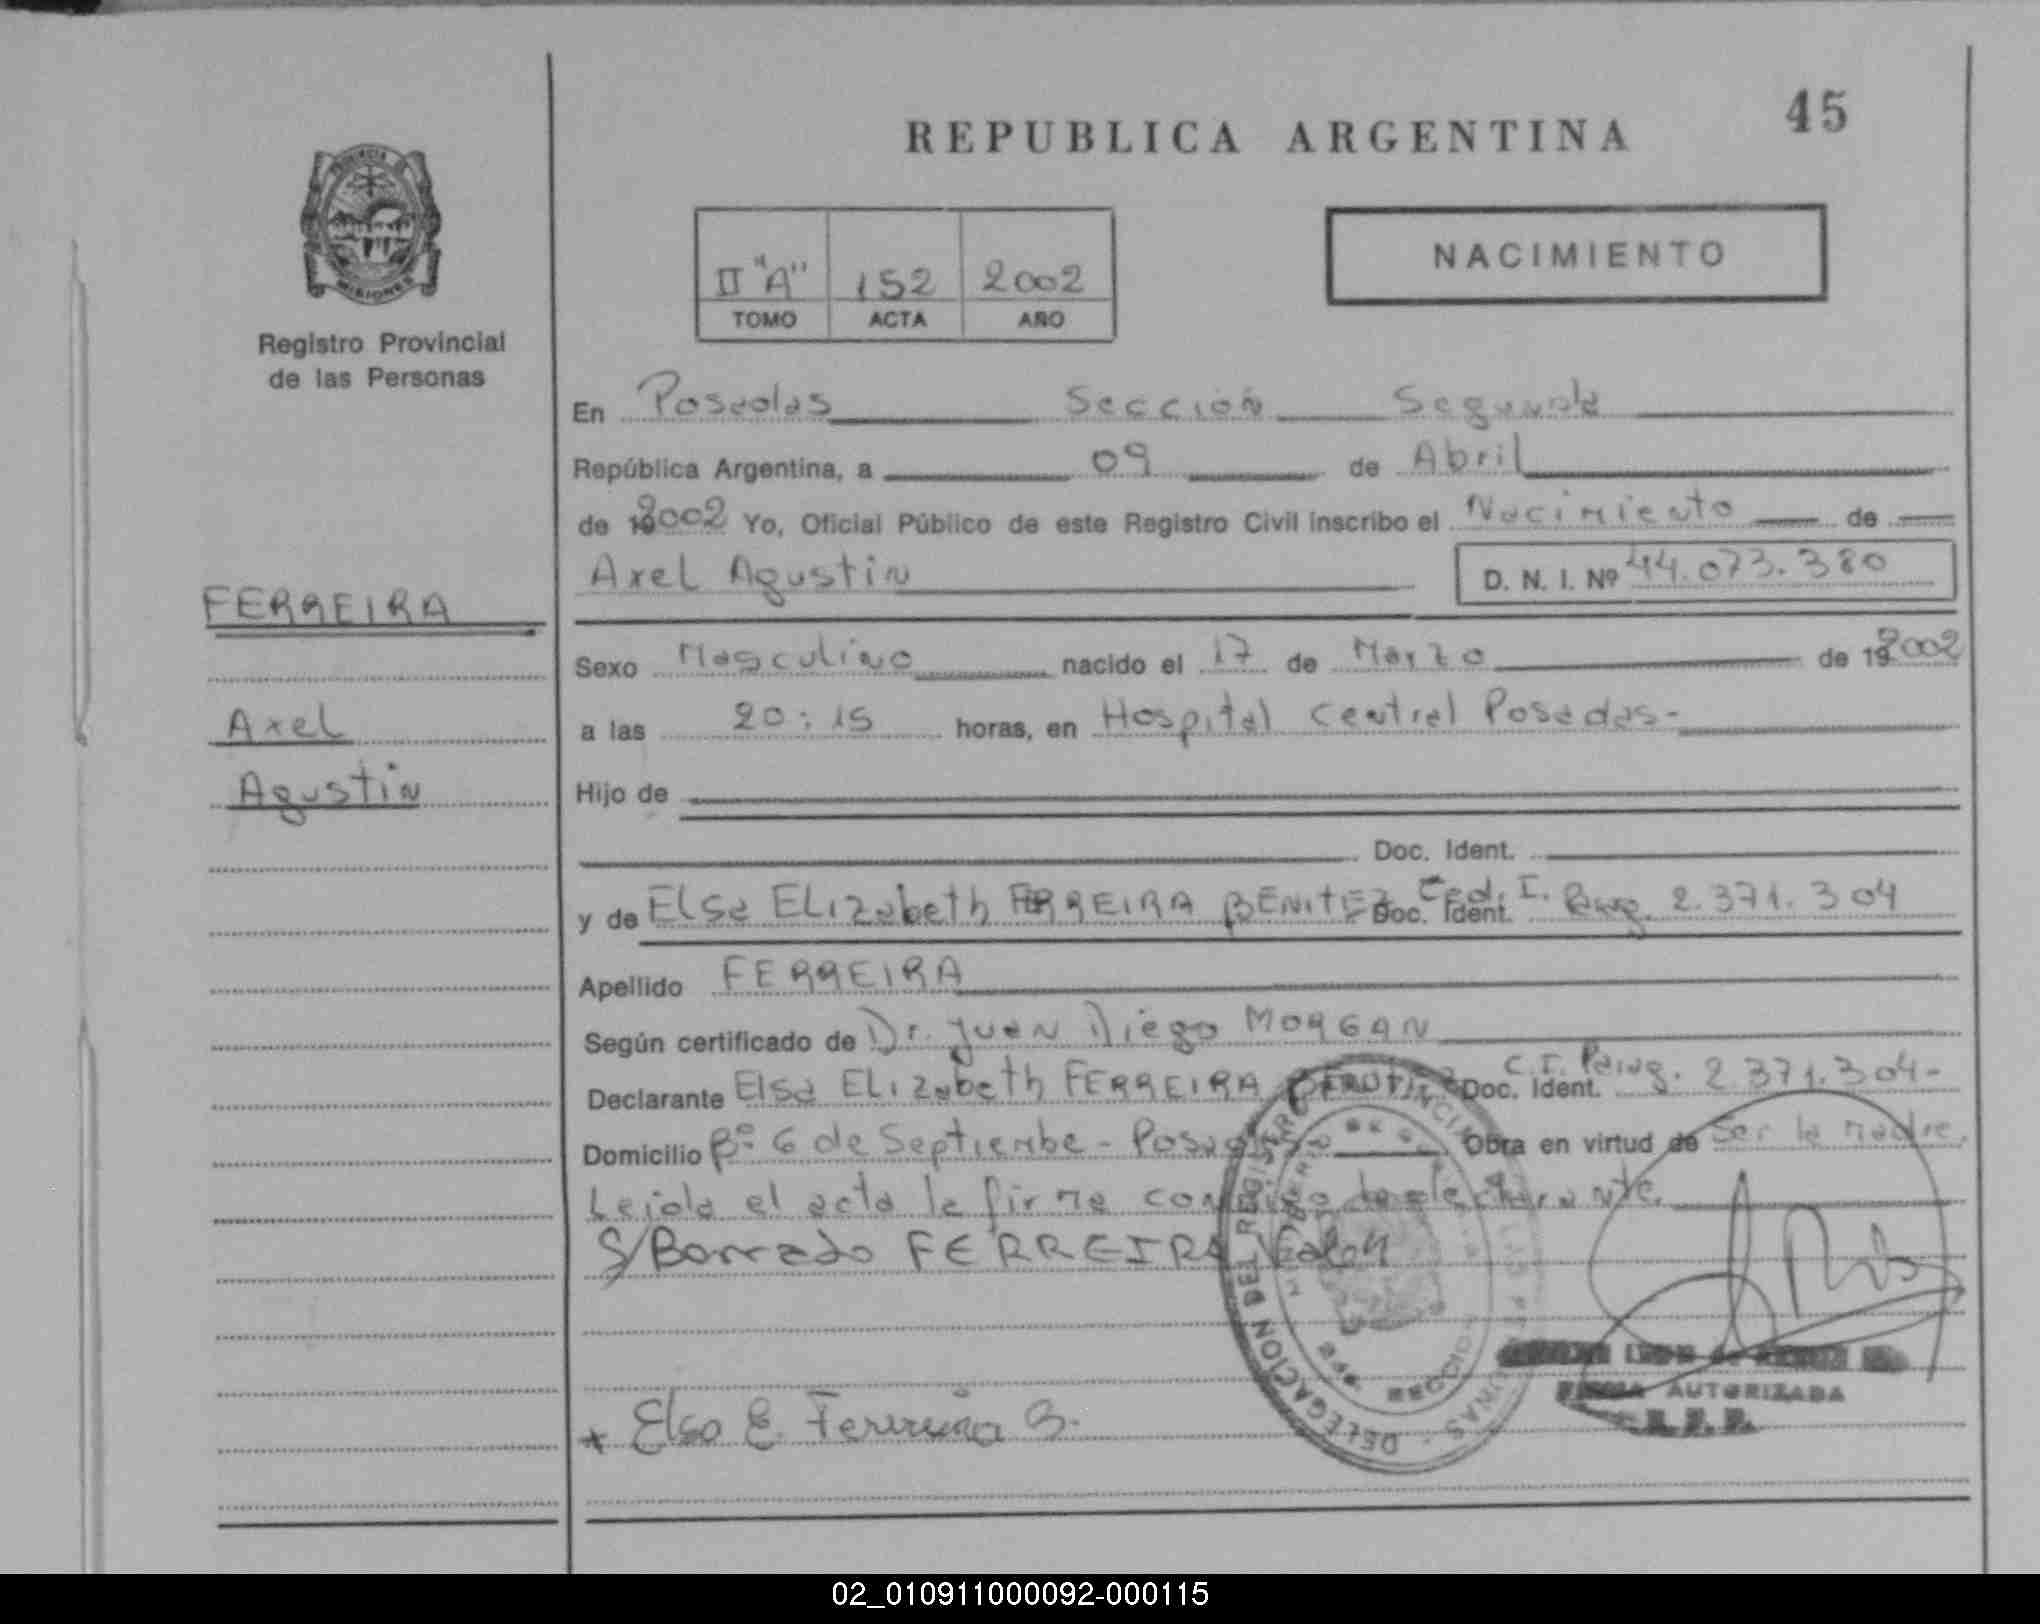 45
REPUBLICA ARGENTINA
PROVINCIA DE
MISIONES
Registro Provincial
de las Personas
II "A" 152 2002
TOMO ACTA AÑO
NACIMIENTO
En Posadas Sección Segunda
República Argentina, a 09 de Abril
de 2002 Yo, Oficial Público de este Registro Civil inscribo el Nacimiento de
Axel Agustin D. N. I. Nº 44.073.380
FERREIRA
Axel
Agustin
Sexo Masculino nacido el 17 de Marzo de 192002
a las 20:15 horas, en Hospital Central Posadas-
Hijo de
Doc. Ident.
y de Elsa Elizabeth FERREIRA BENITEZ Doc. Ident. Ced. I. Parag. 2.371.304
Apellido FERREIRA
Según certificado de Dr. Juan Diego MORGAN
Declarante Elsa Elizabeth FERREIRA BENITEZ Doc. Ident. C.I. Parag. 2.371.304-
Domicilio Bº 6 de Septiembe - Posadas Obra en virtud de Ser la madre.
Leida el acta la firma conmigo la declarante.
S/Borrado FERREIRA Vale
DELEGACION DEL REGISTRO PROVINCIAL DE LAS PERSONAS
2da. SECCION
FIRMA AUTORIZADA
R. P. P.
Elsa E. Ferreira B.
02_010911000092-000115